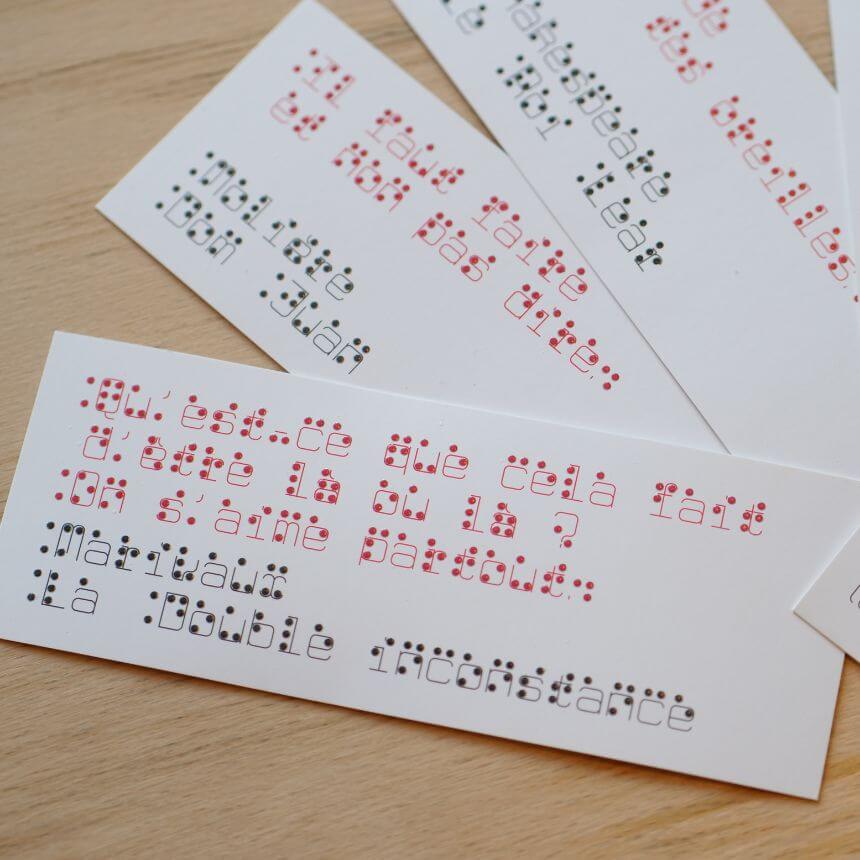 Il faut faire
et non pas dire.
Molière
Dom Juan
de
tes oreilles.
akespeare
Roi Lear
Qu'est-ce que cela fait
d'être là ou là ?
On s'aime partout.
Marivaux
La Double inconstance